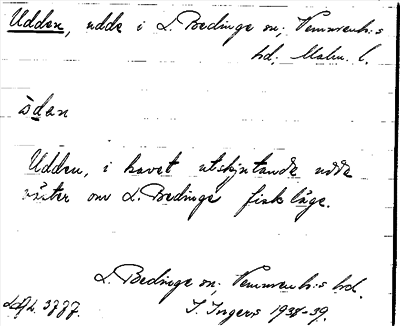 Udden, udde i L. Bedinge sn; Vemmenh:s
hd; Malm. l.
ὸden
Udden, i havet utskjutande udde
väster om L. Bedinge fiskläge.
L. Bedinge sn; Vemmenh:s hd.
LAL. 3777. I. Ingers 1938-39.